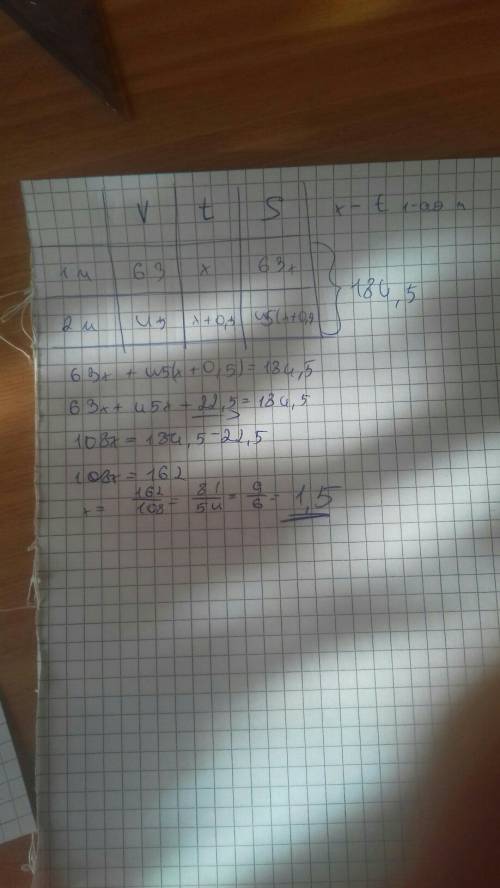 V t S x – t
1м 63 x 63x
2м 45 x+0,5 45(x+0,5 184,5
63x + 45(x+0,5)=184,5
63x + 45x + 22,5=184,5
108x = 184,5-22,5
108x = 162
x = 162/108 = 81/54 = 9/6 = 1,5